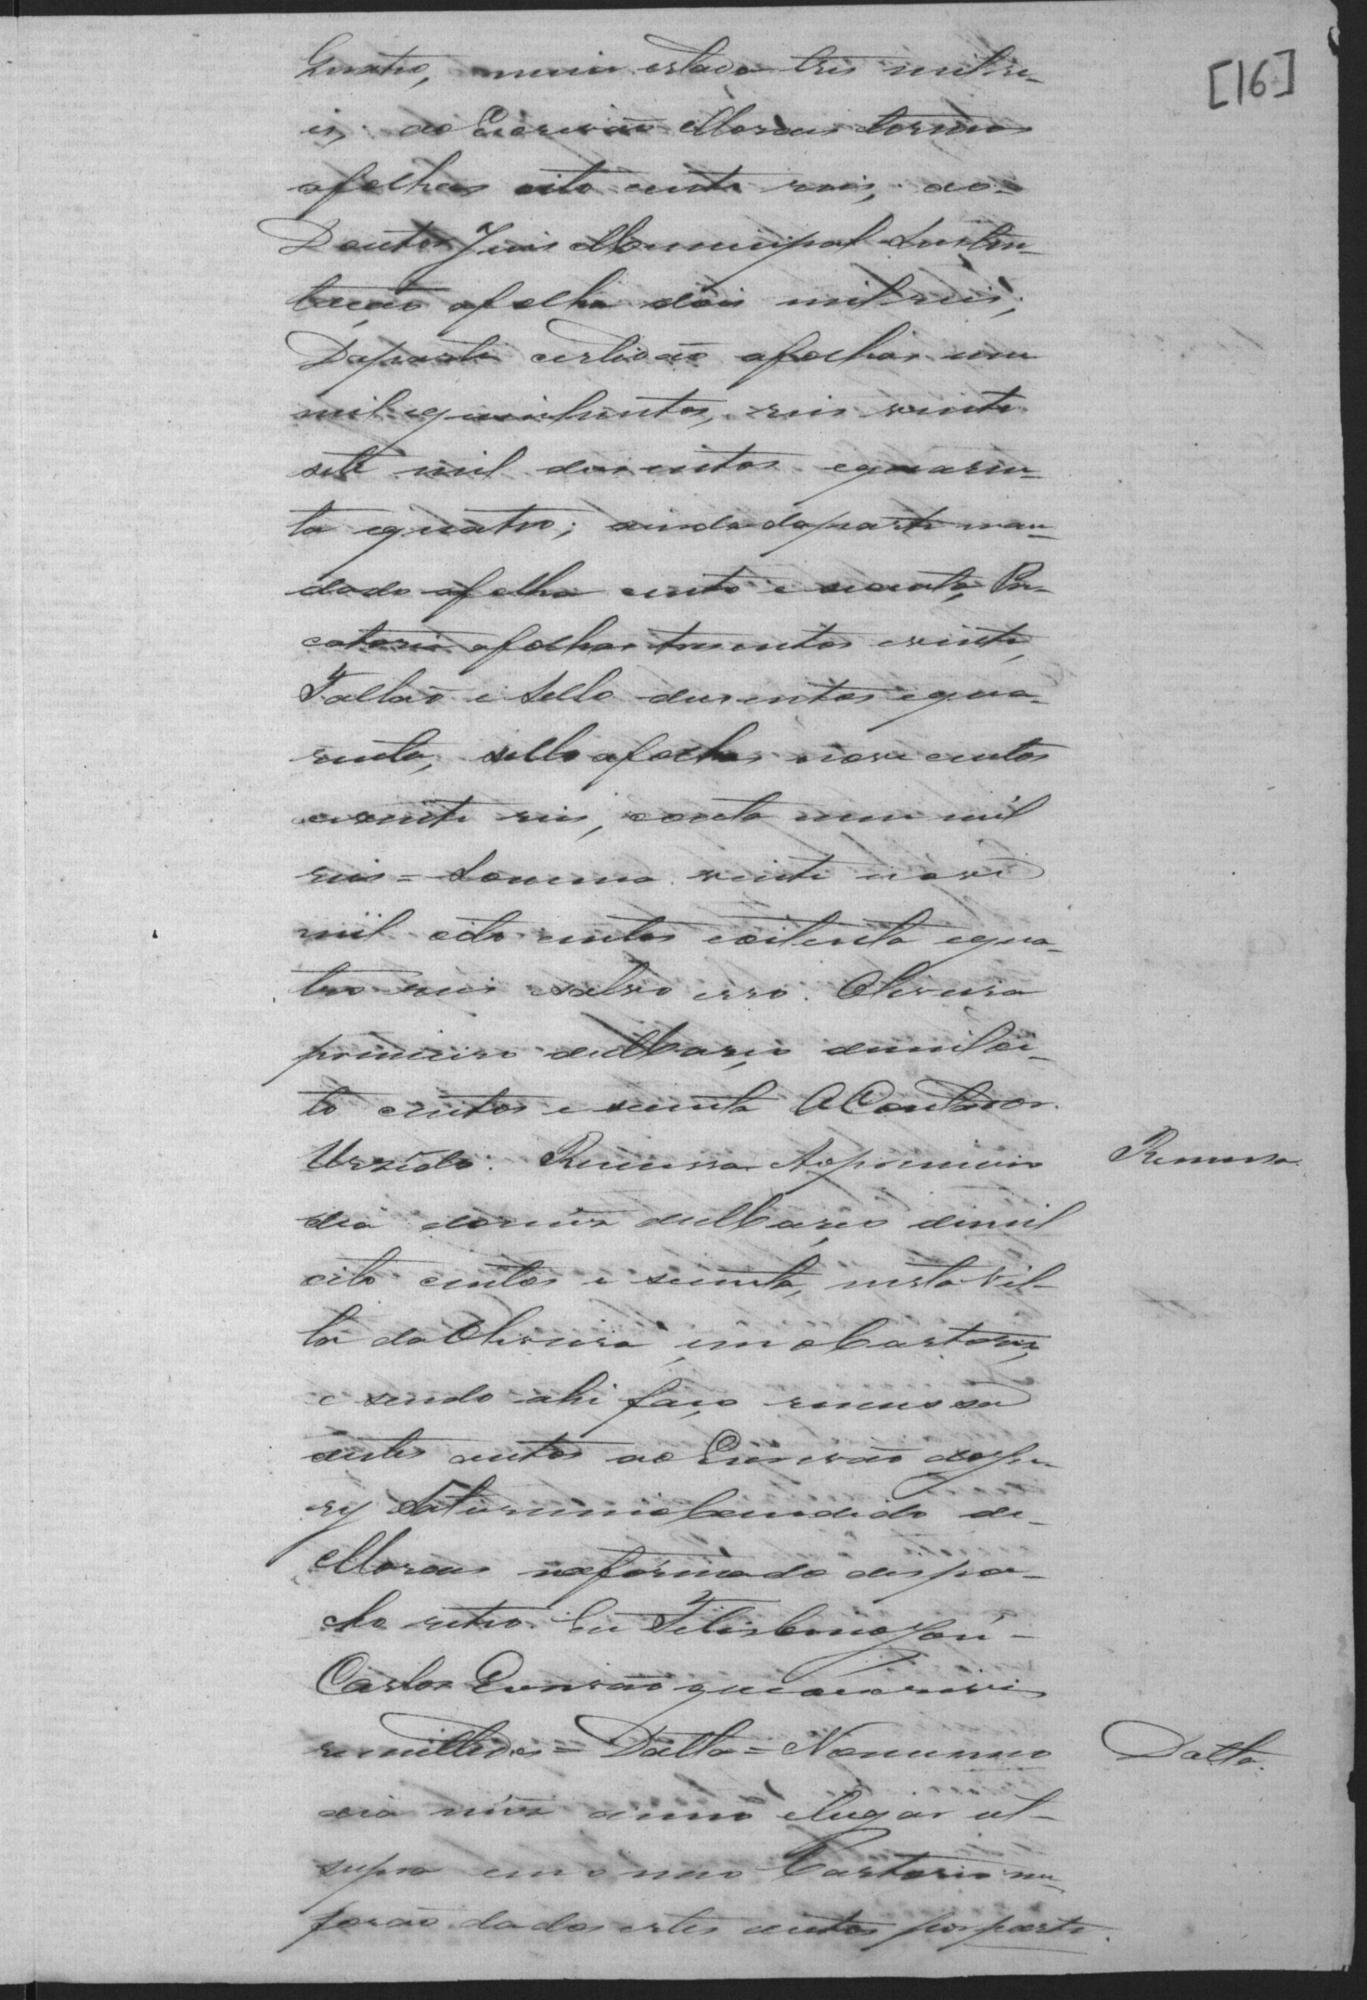 [16]
quatro, meia estada tres milre-
is, ao Escrivão Moraes termos
afolhas oito centos reis, ao-
Doutor Juis Municipal Susten-
tação afolha dois milreis,
Daparte certidão afolhas um
mil equinhentos, reis vinte
sete mil dusentos equaren-
ta equatro; ainda daparte man-
dado afolha cento e secenta, Pre-
catoria afolhas tresentos evinte,
Talhão e sello dusentos equa-
renta, sello afolhas nove centos
evinte reis, conta um mil
reis = Somma vinte nove
mil oito centos eoitenta equa-
tro reis salvo erro. Oliveira
primeiro deMarço demiloi-
to centos e secenta O Contador
Urzedo. Remessa Aoprimeiro
Remessa.
dia domes deMarço demil
oito centos e secenta, nesta Vil-
la da Oliveira, em o Cartorio,
e sendo ahi faço remessa
destes autos ao Escrivão doJu-
ry Saturnino Candido de-
Moraes naforma do despa-
cho retro. Eu Felisbino José-
Carlos Escrivão que o escrevi
remettidos = Datta = No mesmo
Datta.
dia mes anno elugar ut-
supra em o meo Cartorio me
forão dados estes autos por parte